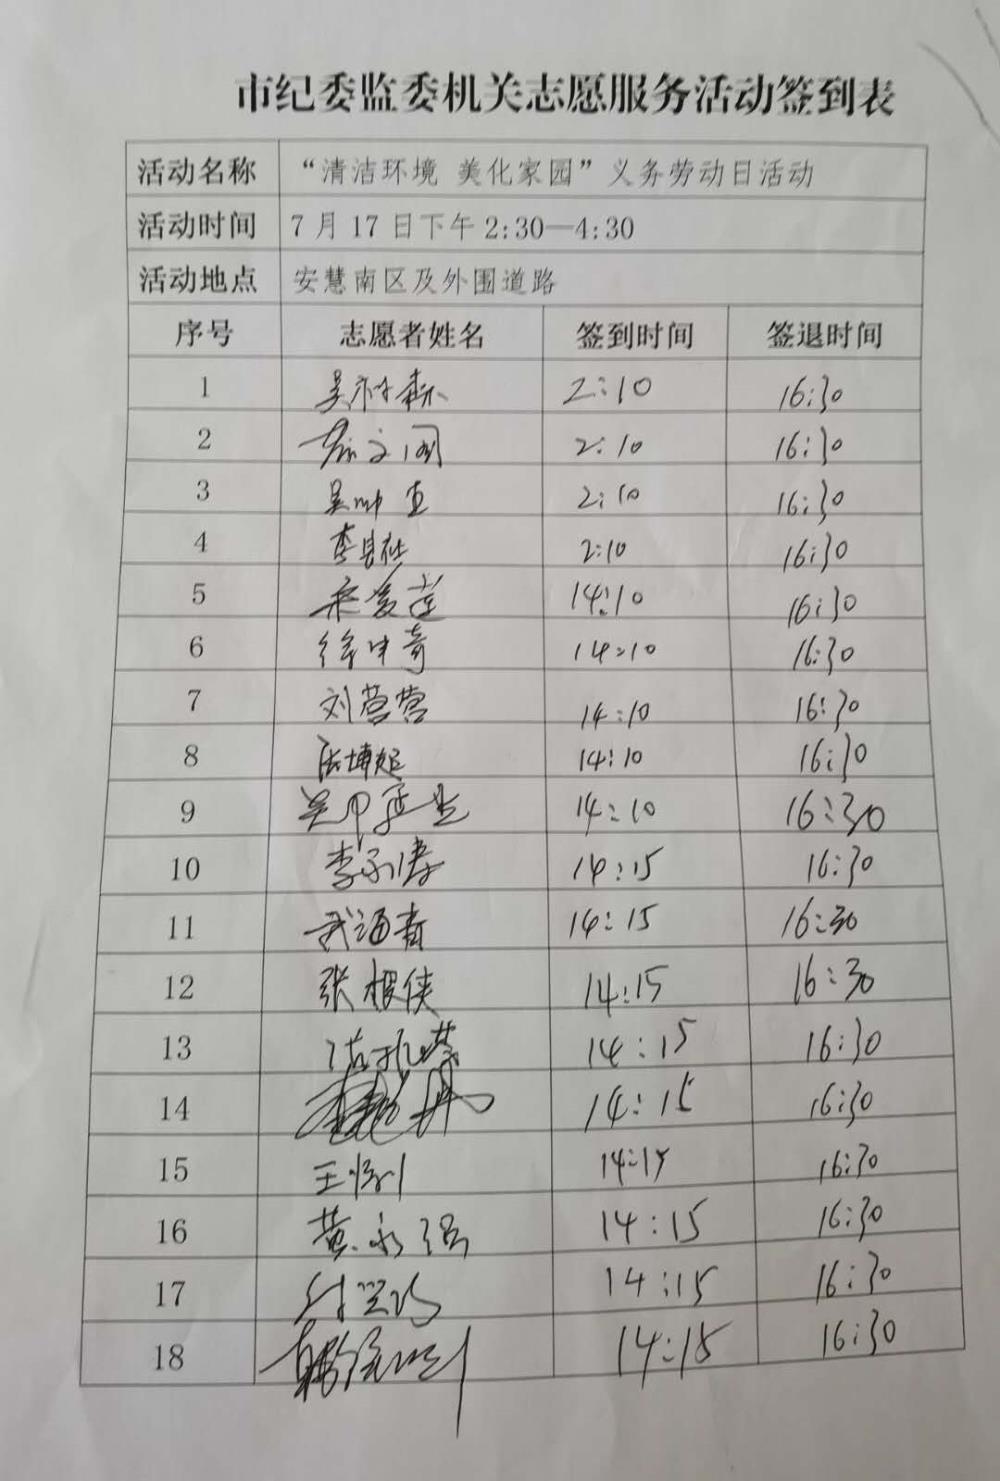 市纪委监委机关志愿服务活动签到表
活动名称 “清洁环境 美化家园”义务劳动日活动
活动时间 7月17日下午2:30—4:30
活动地点 安慧南区及外围道路
序号 志愿者姓名 签到时间 签退时间
1 2:10 16:30
2 2:10 16:30
3 2:10 16:30
4 2:10 16:30
5 14:10 16:30
6 14:10 16:30
7 刘营营 14:10 16:30
8 14:10 16:30
9 14:10 16:30
10 14:15 16:30
11 14:15 16:30
12 张 侠 14:15 16:30
13 14:15 16:30
14 14:15 16:30
15 王 14:15 16:30
16 黄永强 14:15 16:30
17 14:15 16:30
18 14:15 16:30